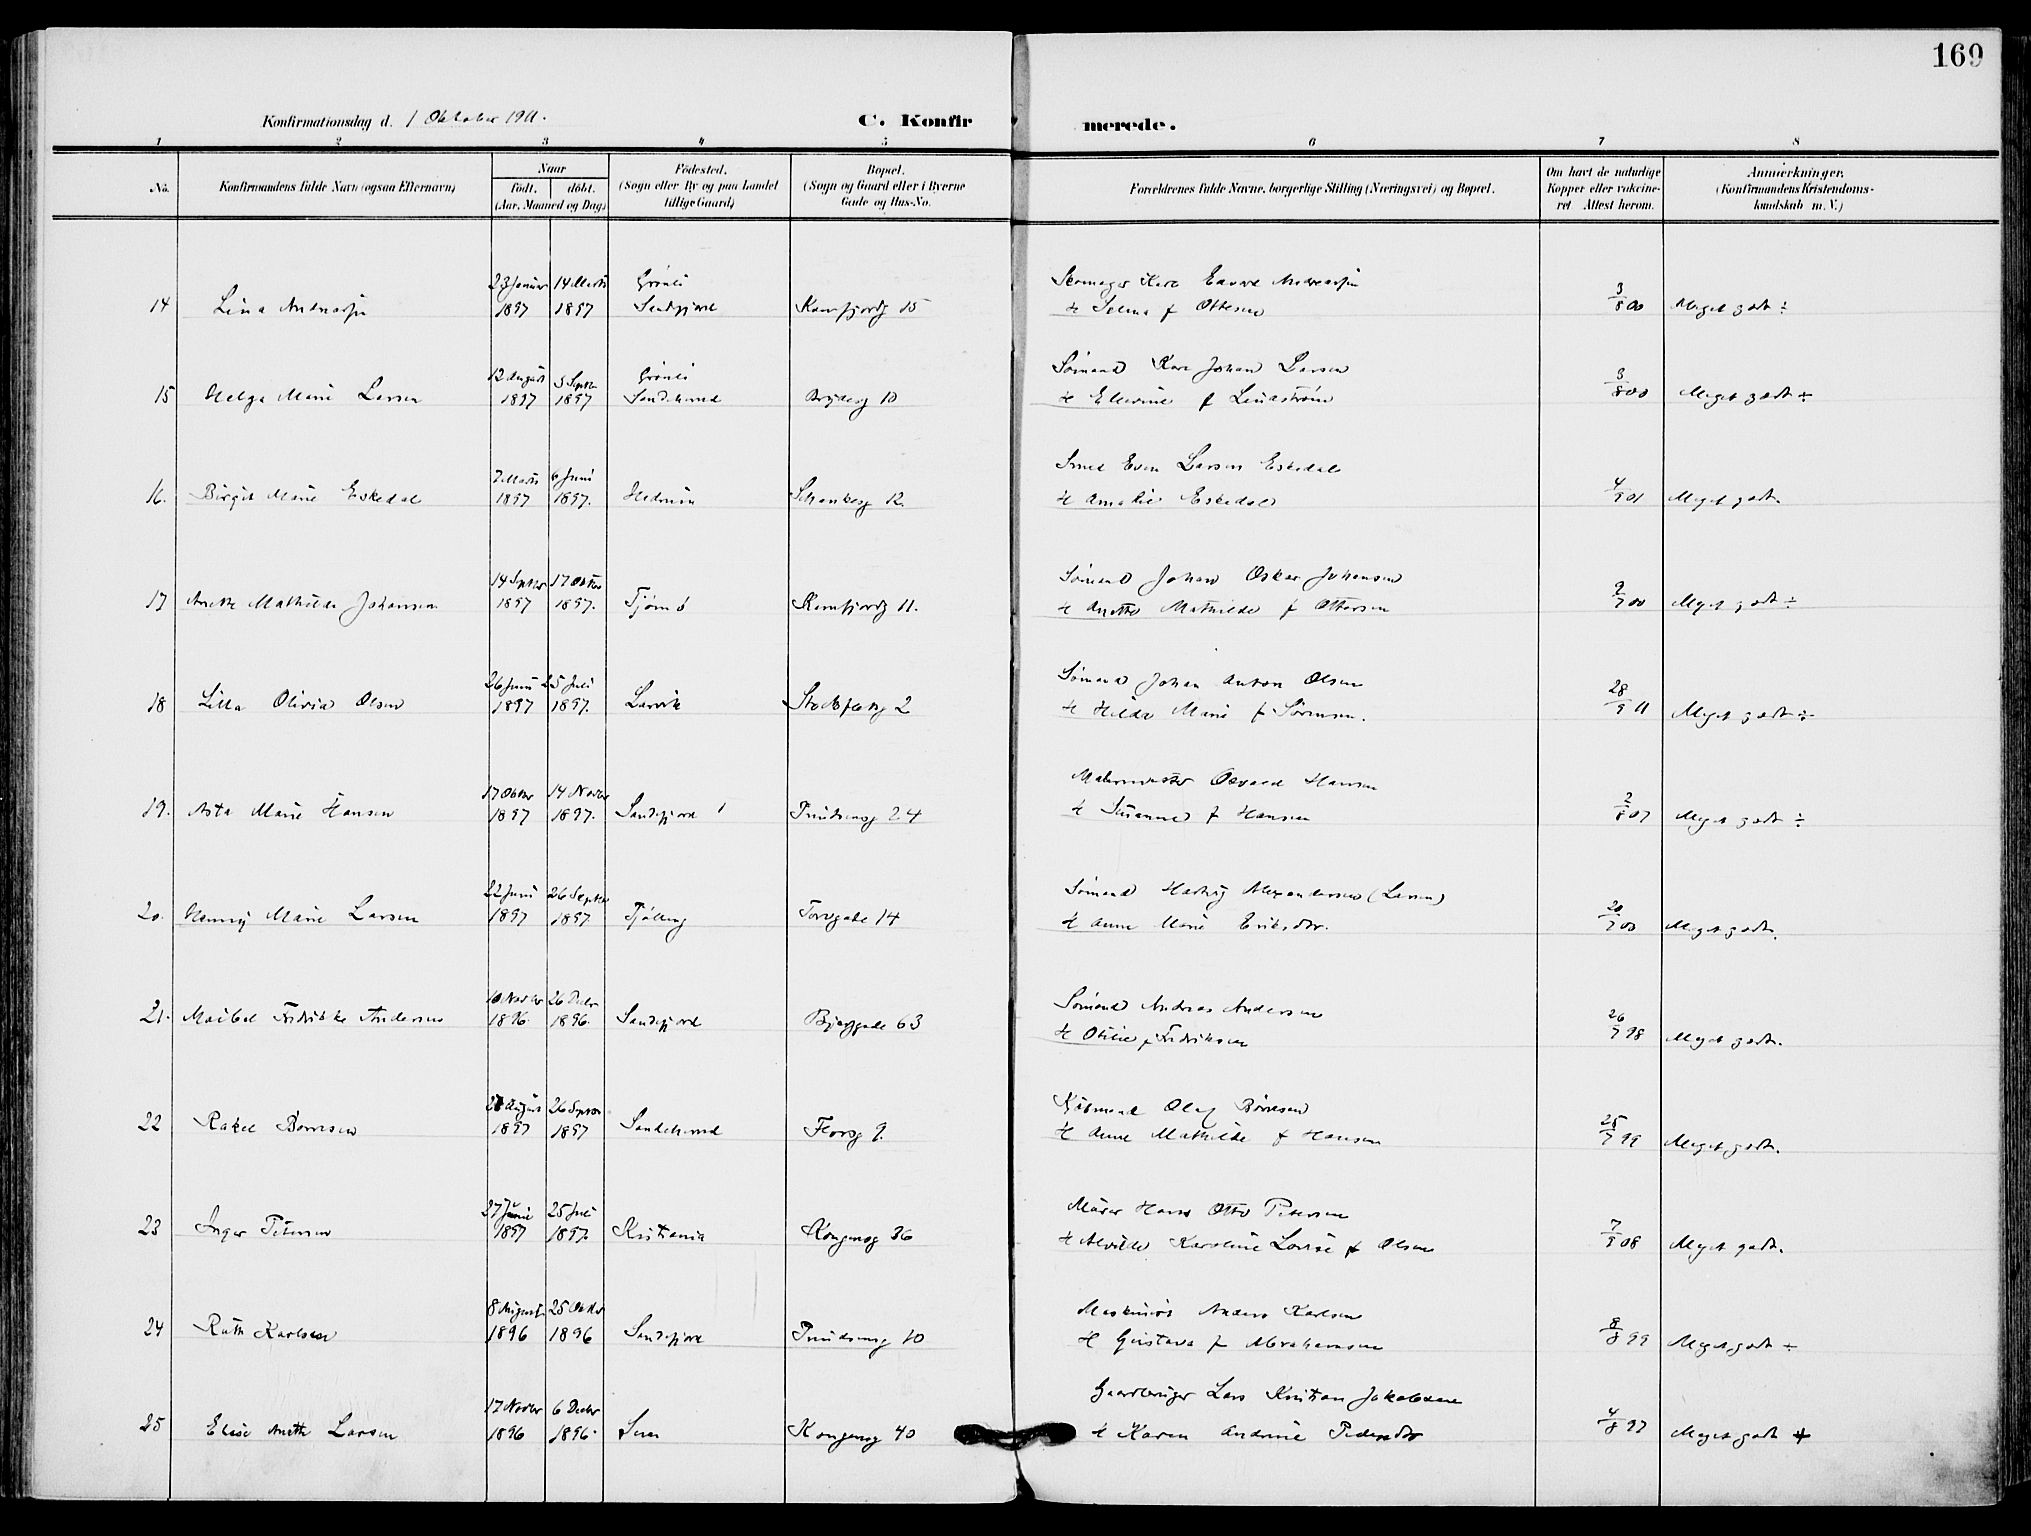 169
Konfirmationsdag d. 1 Oktober 1911.
C. Konfirmerede.
1 2 3 4 5 6 7 8
No.
Konfirmandens fulde Navn (ogsaa Efternavn)
Naar
födt. döbt.
(Aar, Maaned og Dag)
Födested.
(Sogn eller By og paa Landet
tillige Gaard)
Bopæl.
(Sogn og Gaard eller i Byerne
Gade og Hus-No.
Forældrenes fulde Navne, borgerlige Stilling (Næringsvei) og Bopæl.
Om havt de naturlige
Kopper eller vakcine-
ret Attest herom.
Anmærkninger.
(Konfirmandens Kristendoms-
kundskab m. V.)
23 Januar 14 Marts Grönli
14 1897 1897 Sandefjord 15 3/8 00 Meget godt ÷
Karl Andreassen
& Selma f Ottesen
12 August 5 Septbr Grönli Sömand Karl Johan Larsen
15 Helga Marie Larsen 1897 1897 Sandeherred Brydesg 10 & f Lindström 3/8 00 Meget godt ÷
7 Marts 6 Juni Smed Even Larsen Eskedal
16. Birgit Marie Eskedal 1897 1897. Hedrum 12. & Amalie Eskedal 4/9 01 Meget godt.
14 Septbr 17 Oktbr Sömand Johan Oskar Johansen
17 Anette Mathilde Johansen 1897 1897. Tjömö 11. & Anette Mathilde f Ottersen 2/7 00 Meget godt ÷
26 Juni 25 Juli Sömand Johan Anton Olsen
18 Lilla Olivia Olsen 1897 1897. Larvik 2 & Hilda Marie f Sörensen. 28/9 11 Meget godt ÷
17 Oktbr 14 Novbr Malermester Hansen
19. Asta Marie Hansen 1897 1897. Sandefjord 24 & Susanne f Hansen 2/8 07 Meget godt ÷
22 Juni 26 Septbr Sömand Hartvig Alexandersen (Larsen)
20. Marie Larsen 1897 1897. Tjölling Torvgade 14 & Anne Marie Eriksdtr. 20/7 00 Meget godt.
10 Novbr 26 Decbr Sömand Andreas Andersen
21. Fredrikke Andersen 1896 1896. Sandefjord Bjerggade 63 & Otilie f Fredriksen 26/9 98 Meget godt.
August 26 Septbr Olaf Börresen
22 Rakel Börresen 1897 1897 Sandeherred Florsg 9. & Anne Mathilde f Hansen 25/7 99 Meget godt.
27 Juni 25 Juli Murer Hans Otto Petersen
23 Inger Petersen 1897 1897. Kristiania Kongensg 36 & Karoline Lovise f Olsen 7/9 08 Meget godt.
8 August 25 Oktbr Maskinist Anders Karlsen
24 Ruth Karlsen 1896 1896 Sandefjord 10 & Gustava f Abrahamsen 8/8 99 Meget godt ÷
17 Novbr 6 Decbr Gaardbruger Lars Kristian Jakobsen
25 Elise Anette Larsen 1896 1896. Kongensg 40 & Karen Andrine Pedersdtr 4/8 97 Meget godt